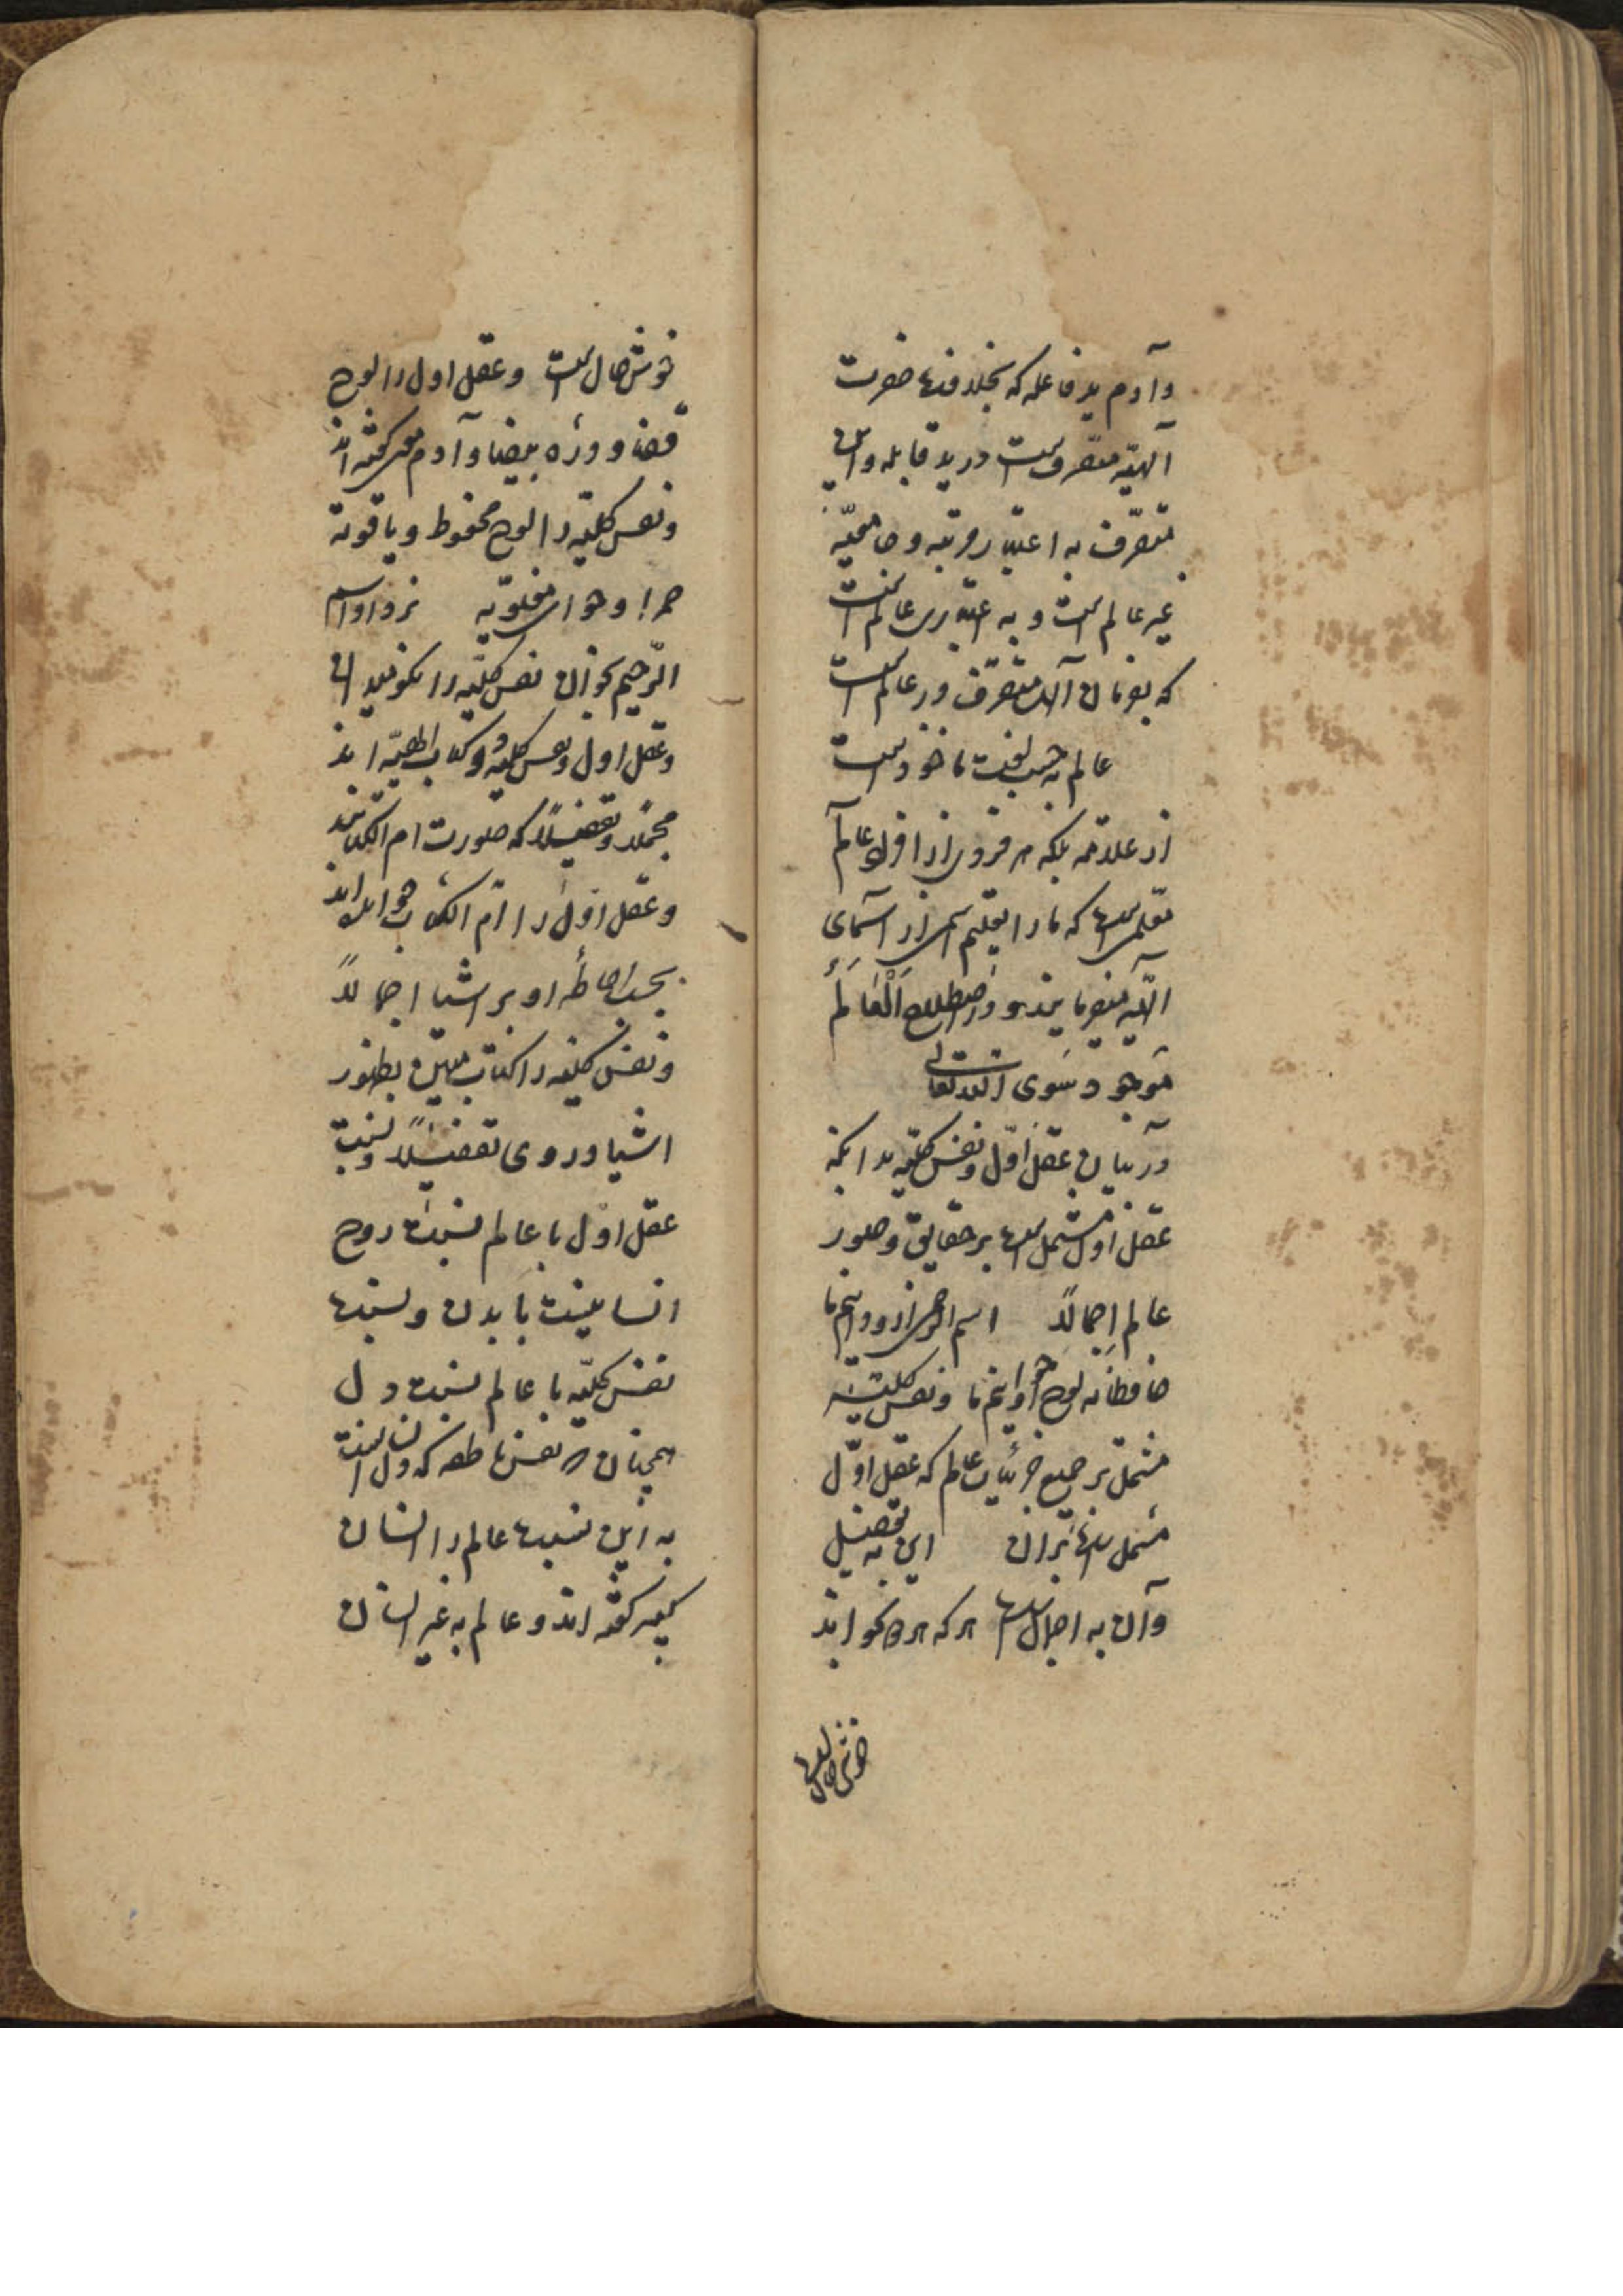 وآدم ید فاعله که بخلافت حضرت
آلهیّه متصرف است در ید قابله واین
متصرّف به اعتبار مرتبه وجامعیّه
غیر عالم است و به اعتباری عالم است
که بفرمان آله متصرّف در عالم است
عالم به حسب لغت ماخوذ است
از علامه بلکه هر فردی از افراد عالم
معلمی است که ما را تعلیم اسمی از اسمای
الهیّه میفرمایند و در اصطلاح اَلْعَالَمُ
مَوجود سَوی الله تعالی
در بیان عقل اوّل ونفس کلیّه بدانکه
عقل اول مشتمل است بر حقایق وصور
عالم اجمالاً اسم الرحمن از و دانیم ما
حافظانه لوح او خوانیم ما ونفس کلیّه
مشتمل بر جمیع جزئیات عالم که عقل اوّل
مشتمل است بران این به تفصیل
وآن به اجمال است هر که هر دو بخواند
خوش حال است
خوش حال است وعقل اول را لوح
قضا و درّه بیضا وآدم معنی گفته اند
ونفس کلیّه را لوح محفوظ ویاقوته
حمرا وحوای معنویّه نزد او اسم
الرّحیم بخوان نفس کلیّه را نکو میدان
وعقل اول ونفس کلیّه دو کتاب الهیّه اند
مجملاً وتفصیلاً که صورت ام الکتابند
وعقل اوّل را امّ الکتاب خوانده اند
بجهت احاطهٔ او بر اشیا اجمالاً
ونفس کلیّه را کتاب مبین بظهور
اشیا در وی تفصیلاً ونسبت
عقل اوّل با عالم نسبت روح
انسانیست با بدن ونسبت
نفس کلیّه با عالم نسبت دل
همچنان که نفس ناطقه که دل انسانست
به این نسبت عالم را انسان
کبیر گفته اند و عالم به غیر انسان